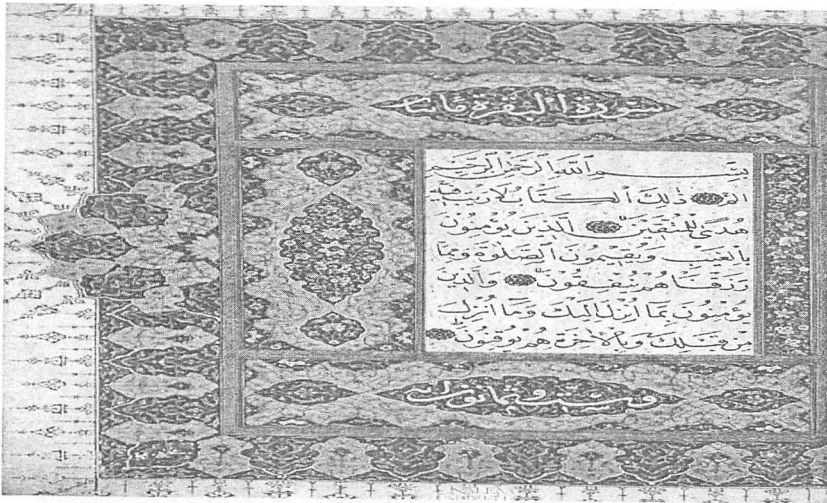 سورة البقرة مائتا
بِسْمِ ٱللَّهِ ٱلرَّحْمَٰنِ ٱلرَّحِيمِ
الٓمٓ ذَٰلِكَ ٱلْكِتَابُ لَا رَيْبَ فِيهِ
هُدًى لِلْمُتَّقِينَ ٱلَّذِينَ يُؤْمِنُونَ
بِٱلْغَيْبِ وَيُقِيمُونَ ٱلصَّلَوٰةَ وَمِمَّا
رَزَقْنَاهُمْ يُنْفِقُونَ وَٱلَّذِينَ
يُؤْمِنُونَ بِمَا أُنْزِلَ إِلَيْكَ وَمَا أُنْزِلَ
مِنْ قَبْلِكَ وَبِٱلْآخِرَةِ هُمْ يُوقِنُونَ
وست وثمانون